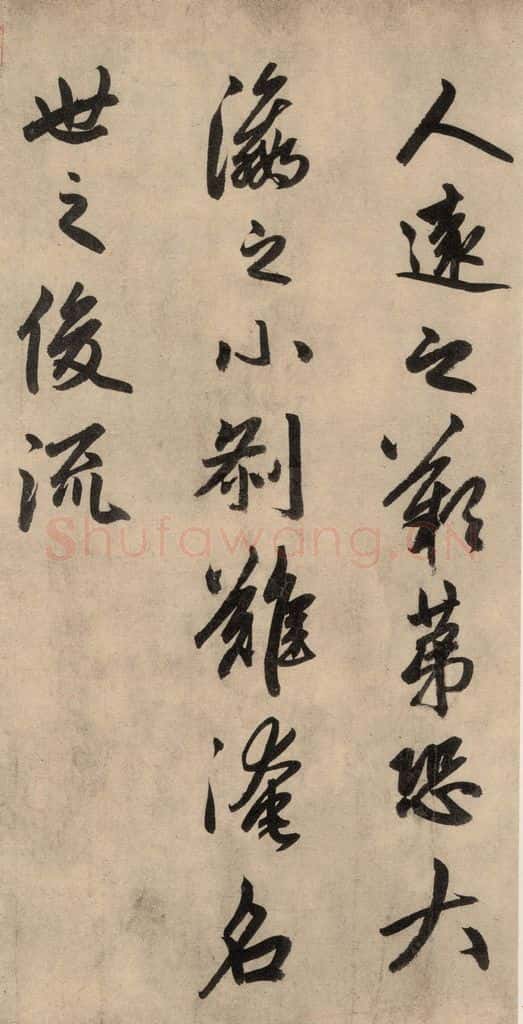 人遠之歎第恐大
瀛之小刹難淹名
世之俊流
Shufawang.CN